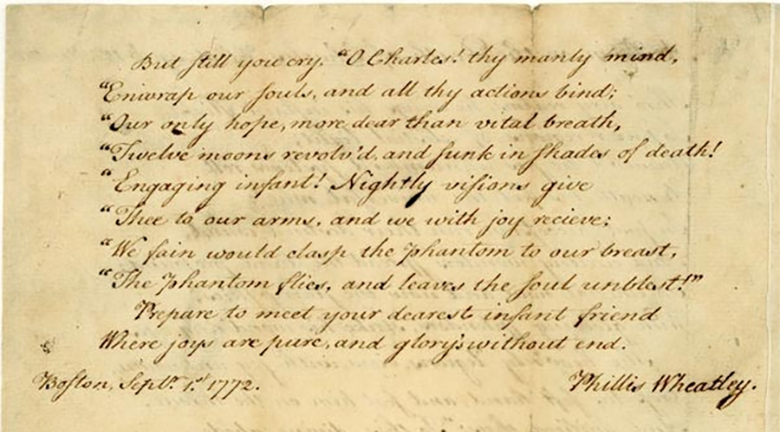 But still you cry. "O Charles! thy manly mind,
"Enwrap our souls, and all thy actions bind;
"Our only hope, more dear than vital breath,
"Twelve moons revolv'd, and sunk in shades of death!
"Engaging infant! Nightly visions give
"Thee to our arms, and we with joy recieve;
"We fain would clasp the phantom to our breast,
"The phantom flies, and leaves the soul unblest!"
Prepare to meet your dearest infant friend
Where joys are pure, and glory's without end.
Boston, Septr. 1st 1772. Phillis Wheatley.